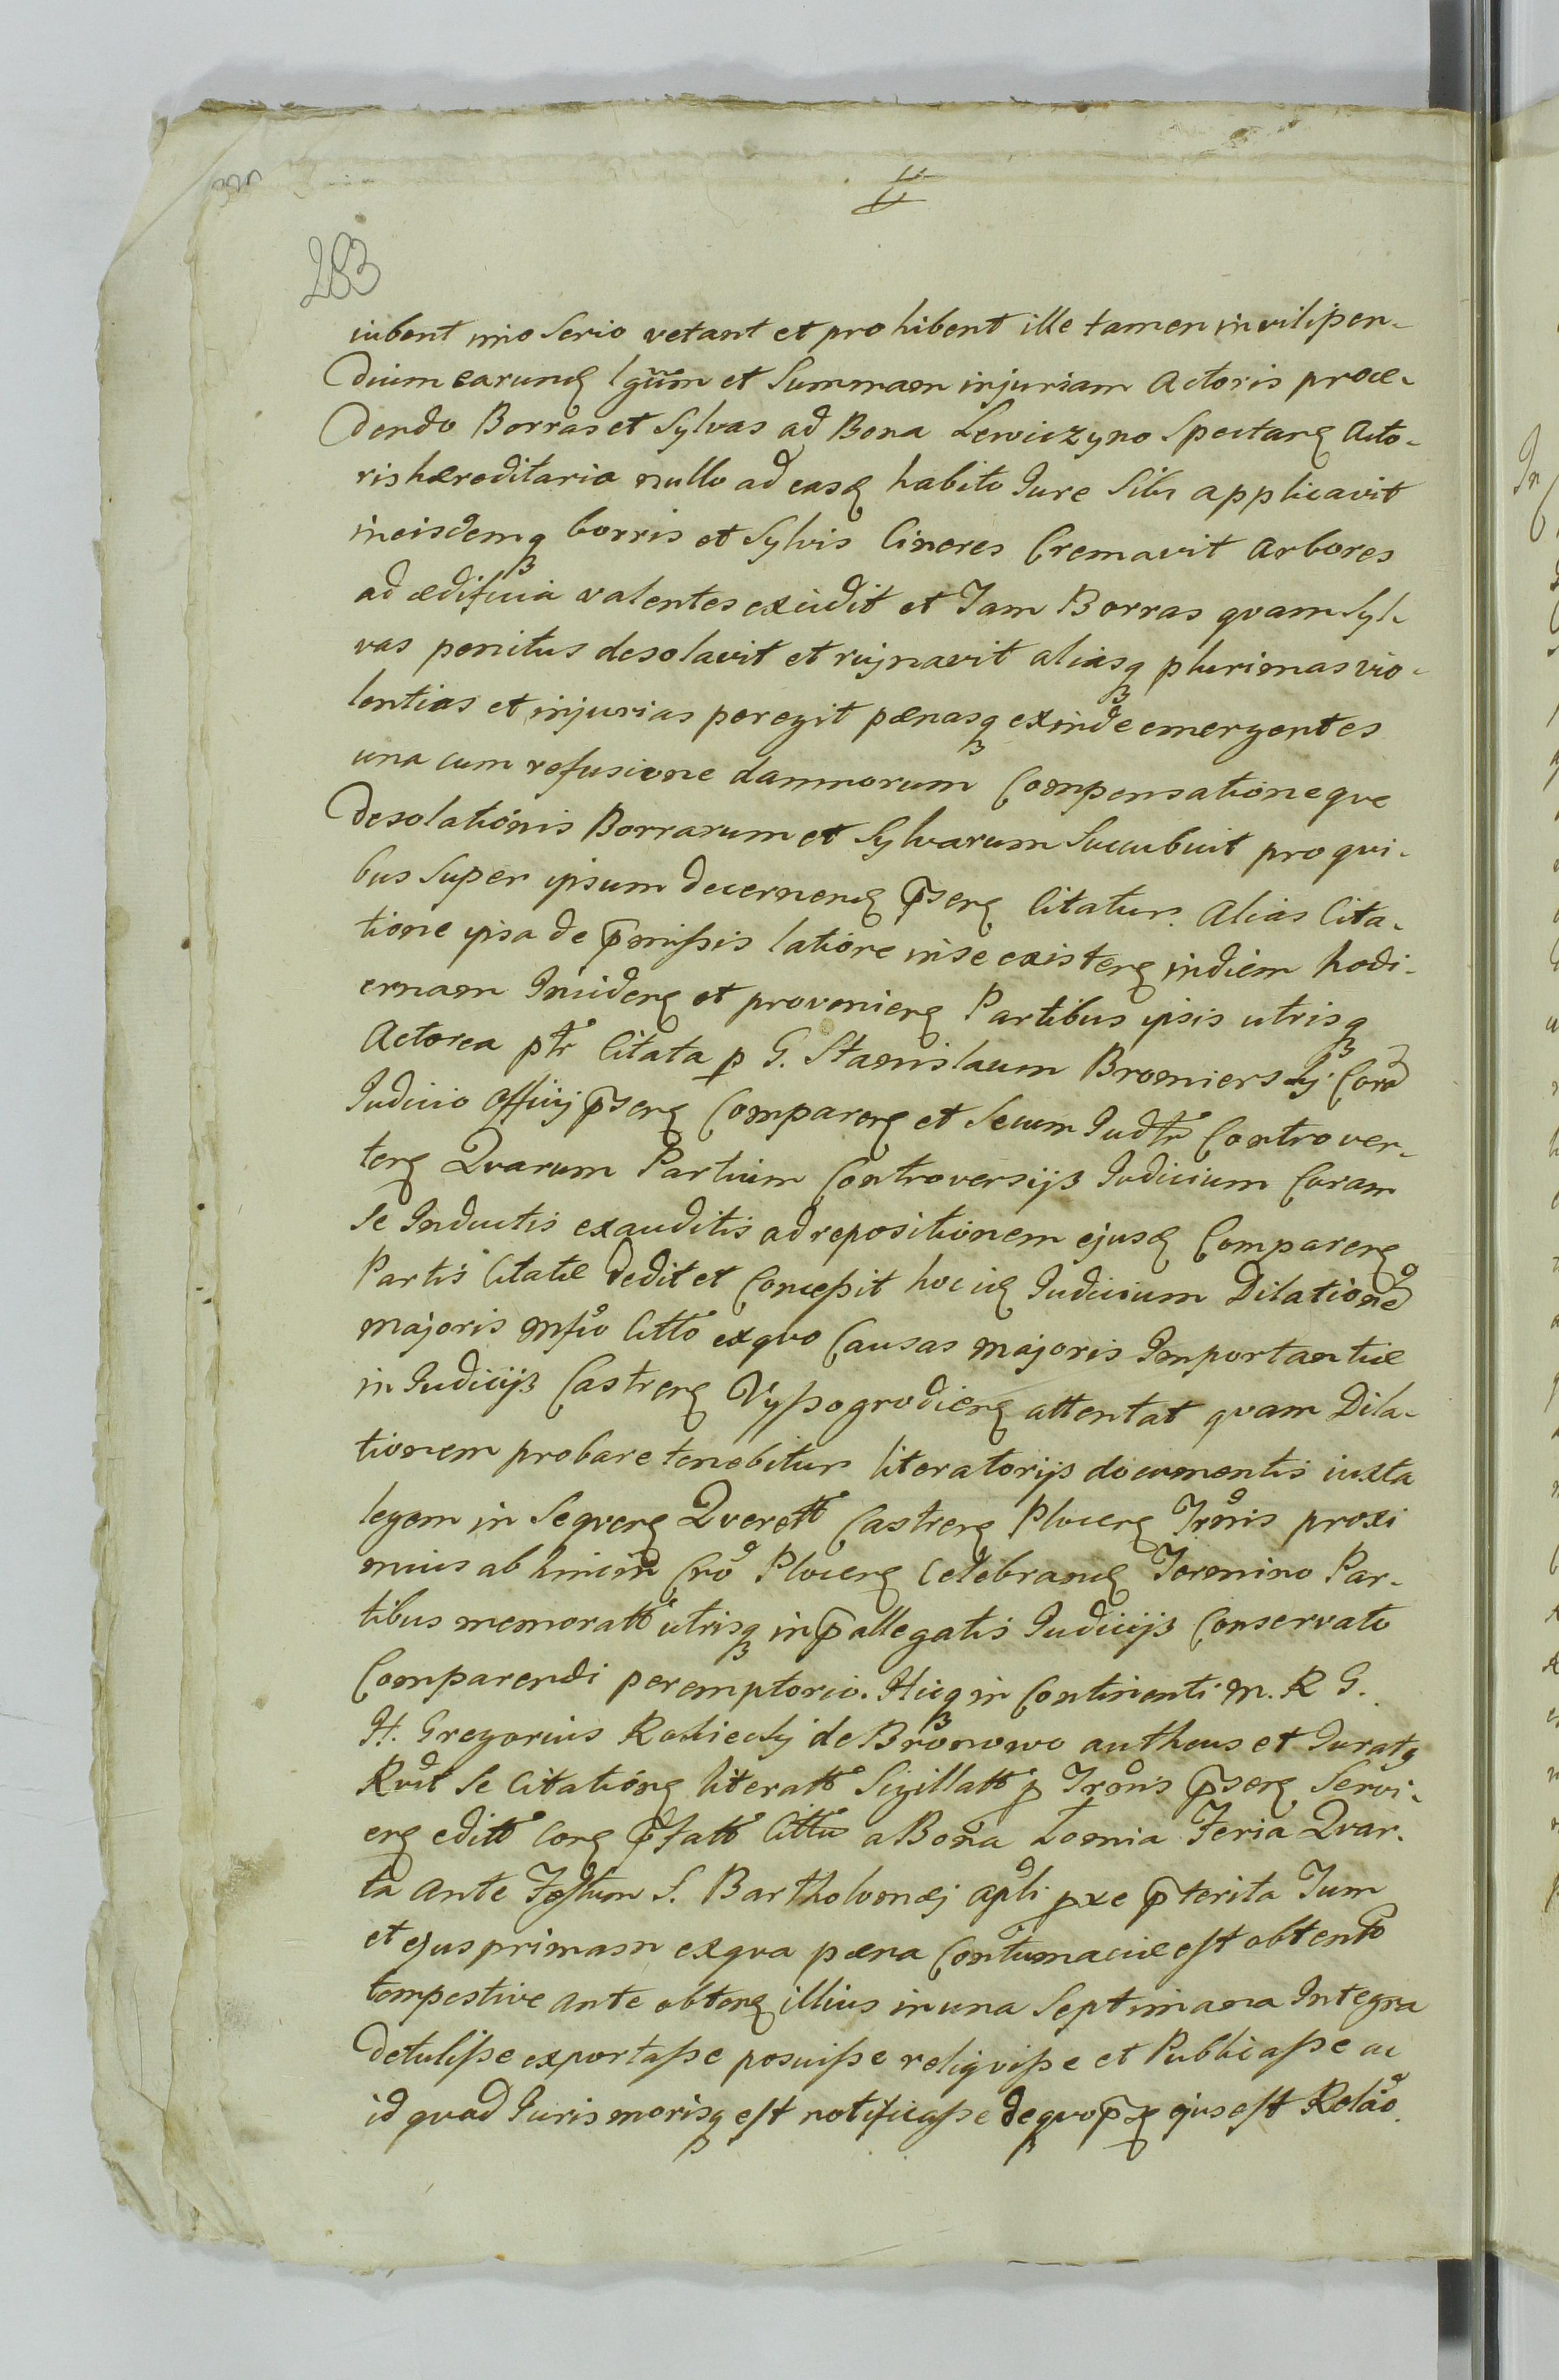 283
iubent imo serio vetant et prohibent ille tamen in vilipen-
dium earund lgūm et Summam injuriam Actoris proce-
dendo Borras et Sylvas ad Bona Lewiczyno Spectan Acto-
ris hæreditaria nullo ad easd habito Jure Sibi applicavit
in eisdemq borris et Sylvis Cineres Cremavit Arbores
ad ædificia valentes excidit et Tam Borras qvam Syl-
vas penitus desolavit et rujnavit aliasq plurimas vio-
lentias et injurias peregit pænasq exinde emergentes
una cum refusione damnorum Compensationeqve
desolationis Borrarum et Sylvarum Succubuit pro qvi-
bus Super ipsum decernend p̄sen Citatur. Alias Cita-
tione ipsa de p̄missis latiore in se existen in diem hodi-
ernam Inciden et provenien Partibus ipsis utrisq
Actorea ptr Citata p G. Stanislaum Bromierskj Cord
Judicio Officij p̄sen Comparen et Secum Judtr Controver-
ten Qvarum Partium Controversijs Judicium Coram
Se Inductis exauditis ad repositionem ejusd Comparen
Partis Citatæ dedit et Concessit hoc id Judicium Dilatione
majoris Citto exqvo Causas majoris Importantiæ
in Judicijs Castren Vyssogrodien attentat qvam Dila-
tionem probare tenebitur literatorijs documentis iuxta
legem in Seqven Qverell Castren Plocen Trmis proxi
mius ab hinc in Cro Plocen Celebrand Termino Par-
tibus memoratt utrisq in p̄allegatis Judicijs Conservato
Comparendi peremptorio. Hicq in Continenti M. R G.
H. Gregorius Rokickj de Bronowo authcus et Juratq
Rvit Se Citation literatt Sigillatt p Trmis p̄sen Servi-
en editt Con p̄fatt Citto a Bona Łomia Feria Qvar-
ta Ante Festum S. Bartholomæj Apli pxe p̄terita Tum
et ejus primam exqva pæna Contumaciæ est obtento
tempestive ante obten illius in una Septimana Integra
detulisse exportasse posuisse reliqvisse et Publicasse ac
id qvod Juris morisq est notificasse deqvo p̄ ejus est Relao.